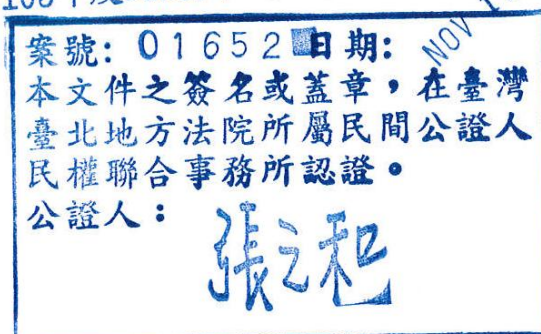 案號: 01652 日期:
NOV
本文件之簽名或蓋章，在臺灣
臺北地方法院所屬民間公證人
民權聯合事務所認證。
公證人：
張之和